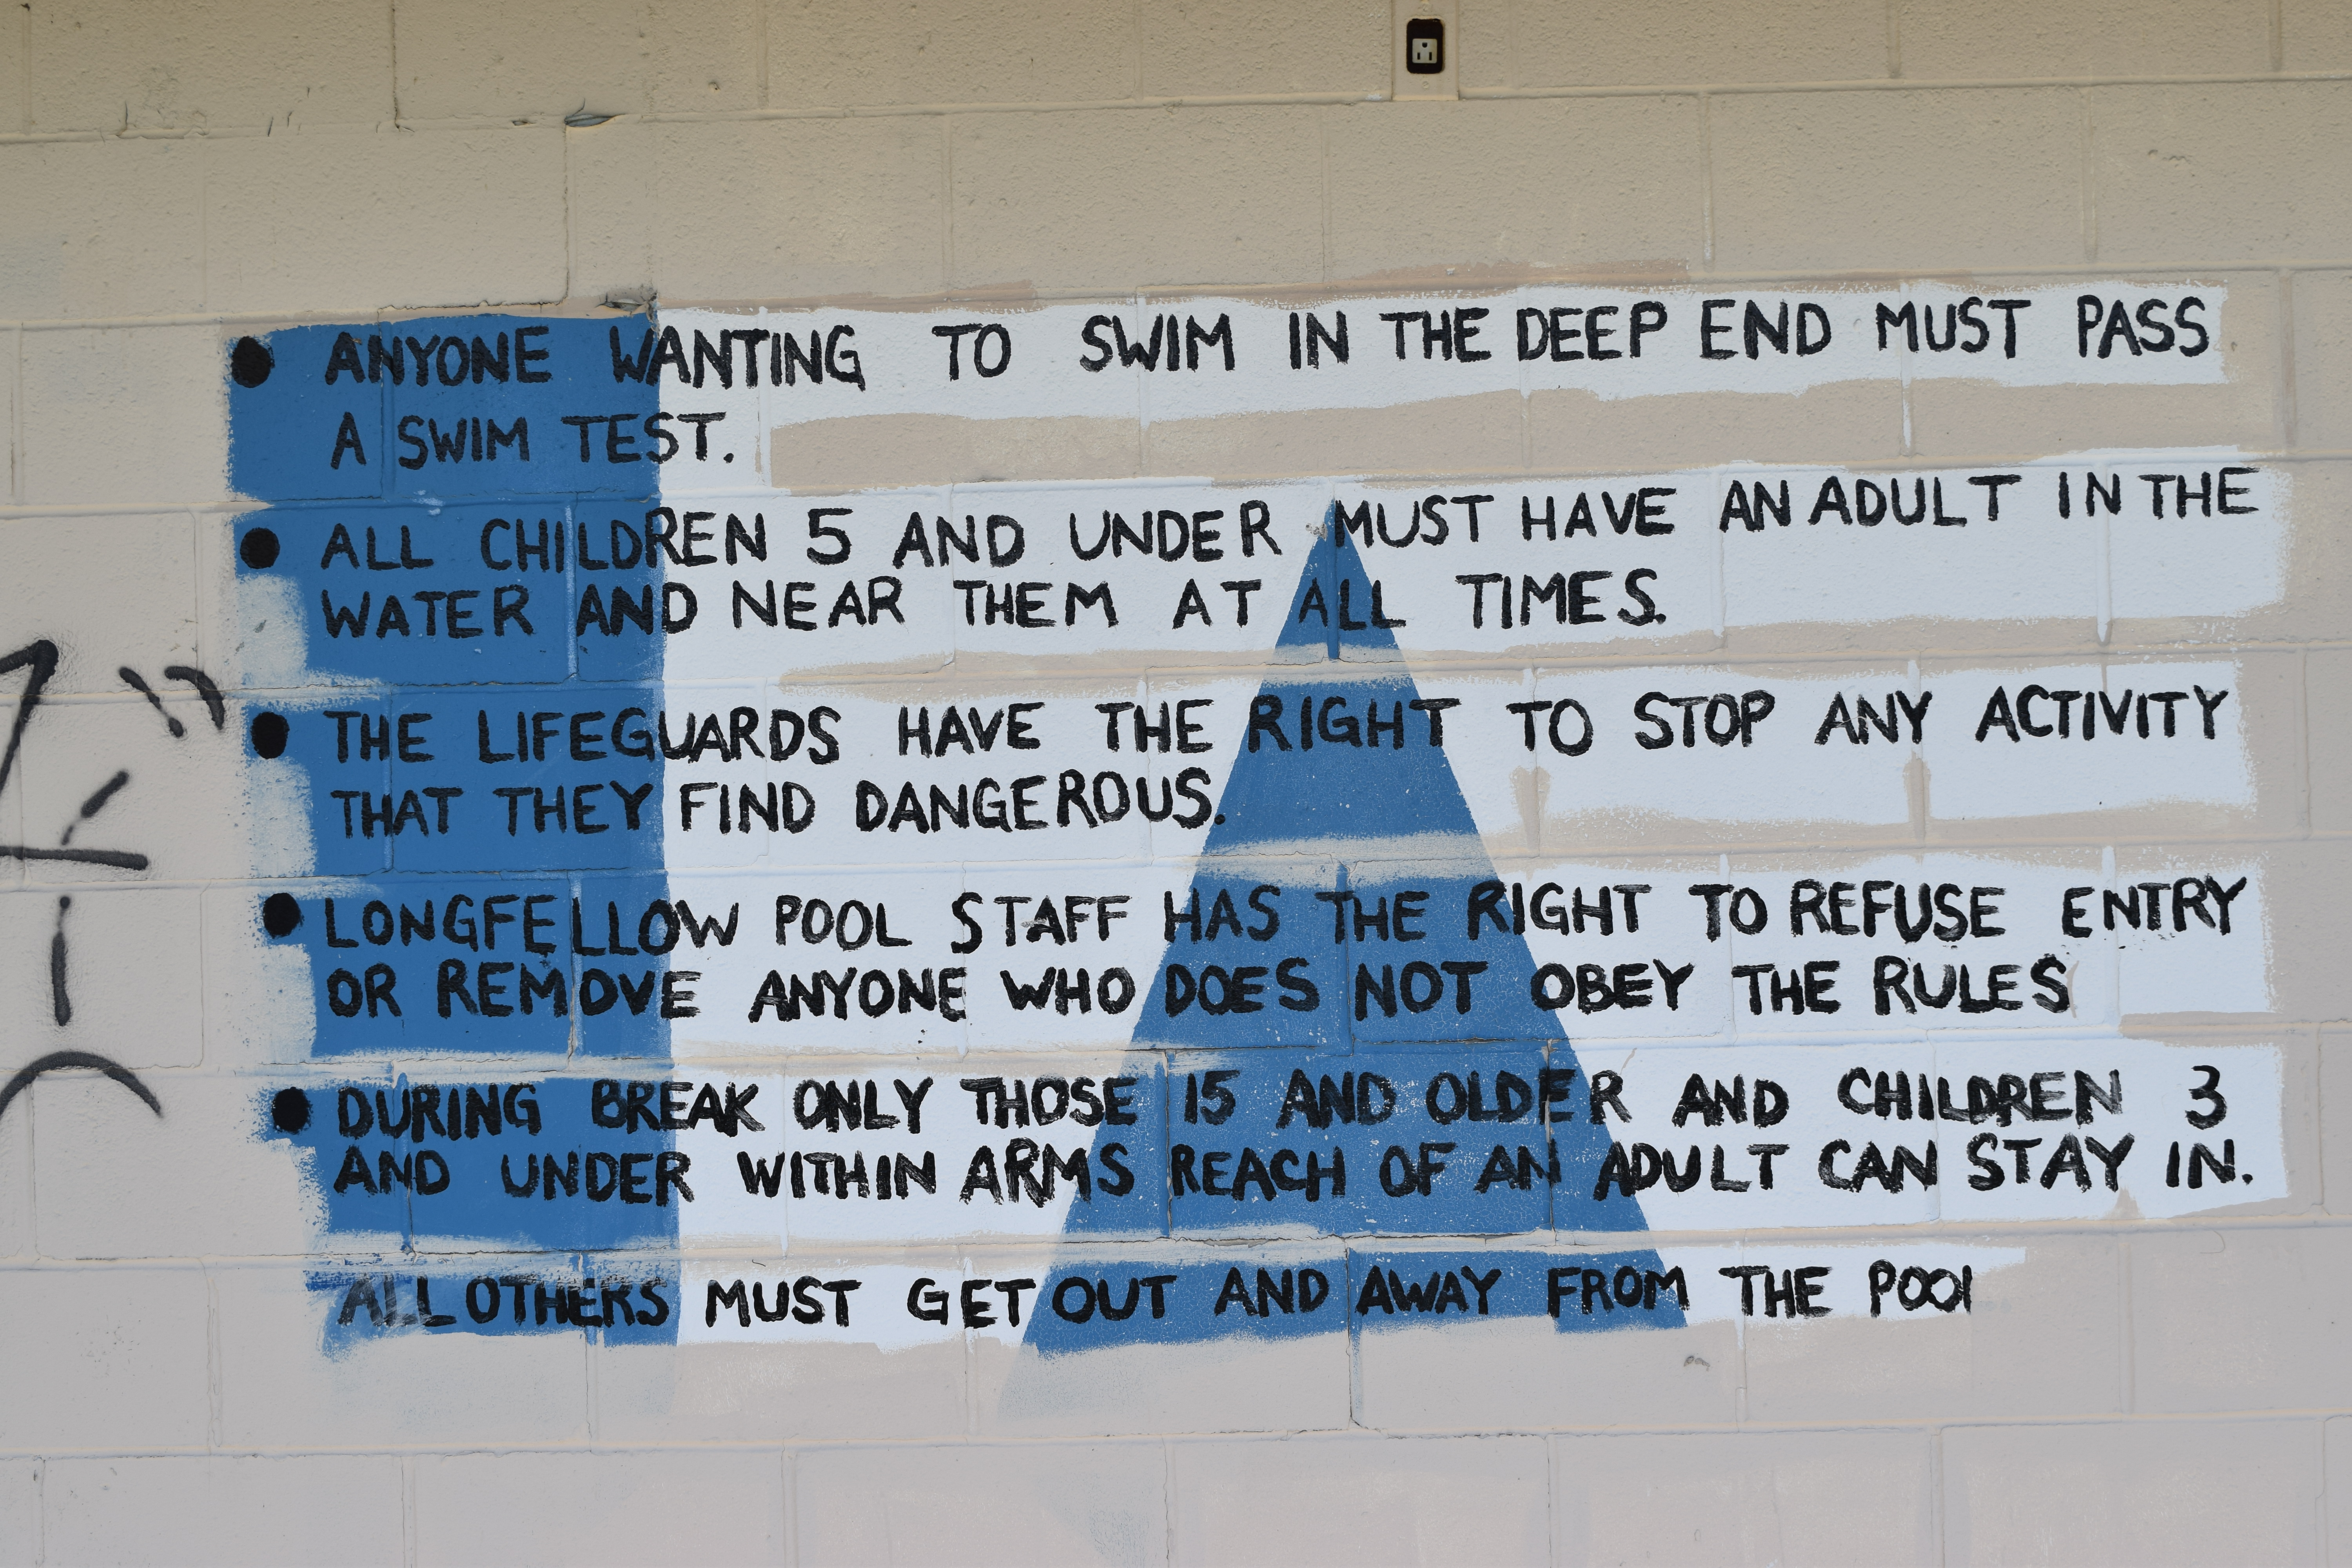 • ANYONE WANTING TO SWIM IN THE DEEP END MUST PASS
A SWIM TEST.
• ALL CHILDREN 5 AND UNDER MUST HAVE AN ADULT IN THE
WATER AND NEAR THEM AT ALL TIMES.
• THE LIFEGUARDS HAVE THE RIGHT TO STOP ANY ACTIVITY
THAT THEY FIND DANGEROUS.
• LONGFELLOW POOL STAFF HAS THE RIGHT TO REFUSE ENTRY
OR REMOVE ANYONE WHO DOES NOT OBEY THE RULES
• DURING BREAK ONLY THOSE 15 AND OLDER AND CHILDREN 3
AND UNDER WITHIN ARMS REACH OF AN ADULT CAN STAY IN.
ALL OTHERS MUST GET OUT AND AWAY FROM THE POOl